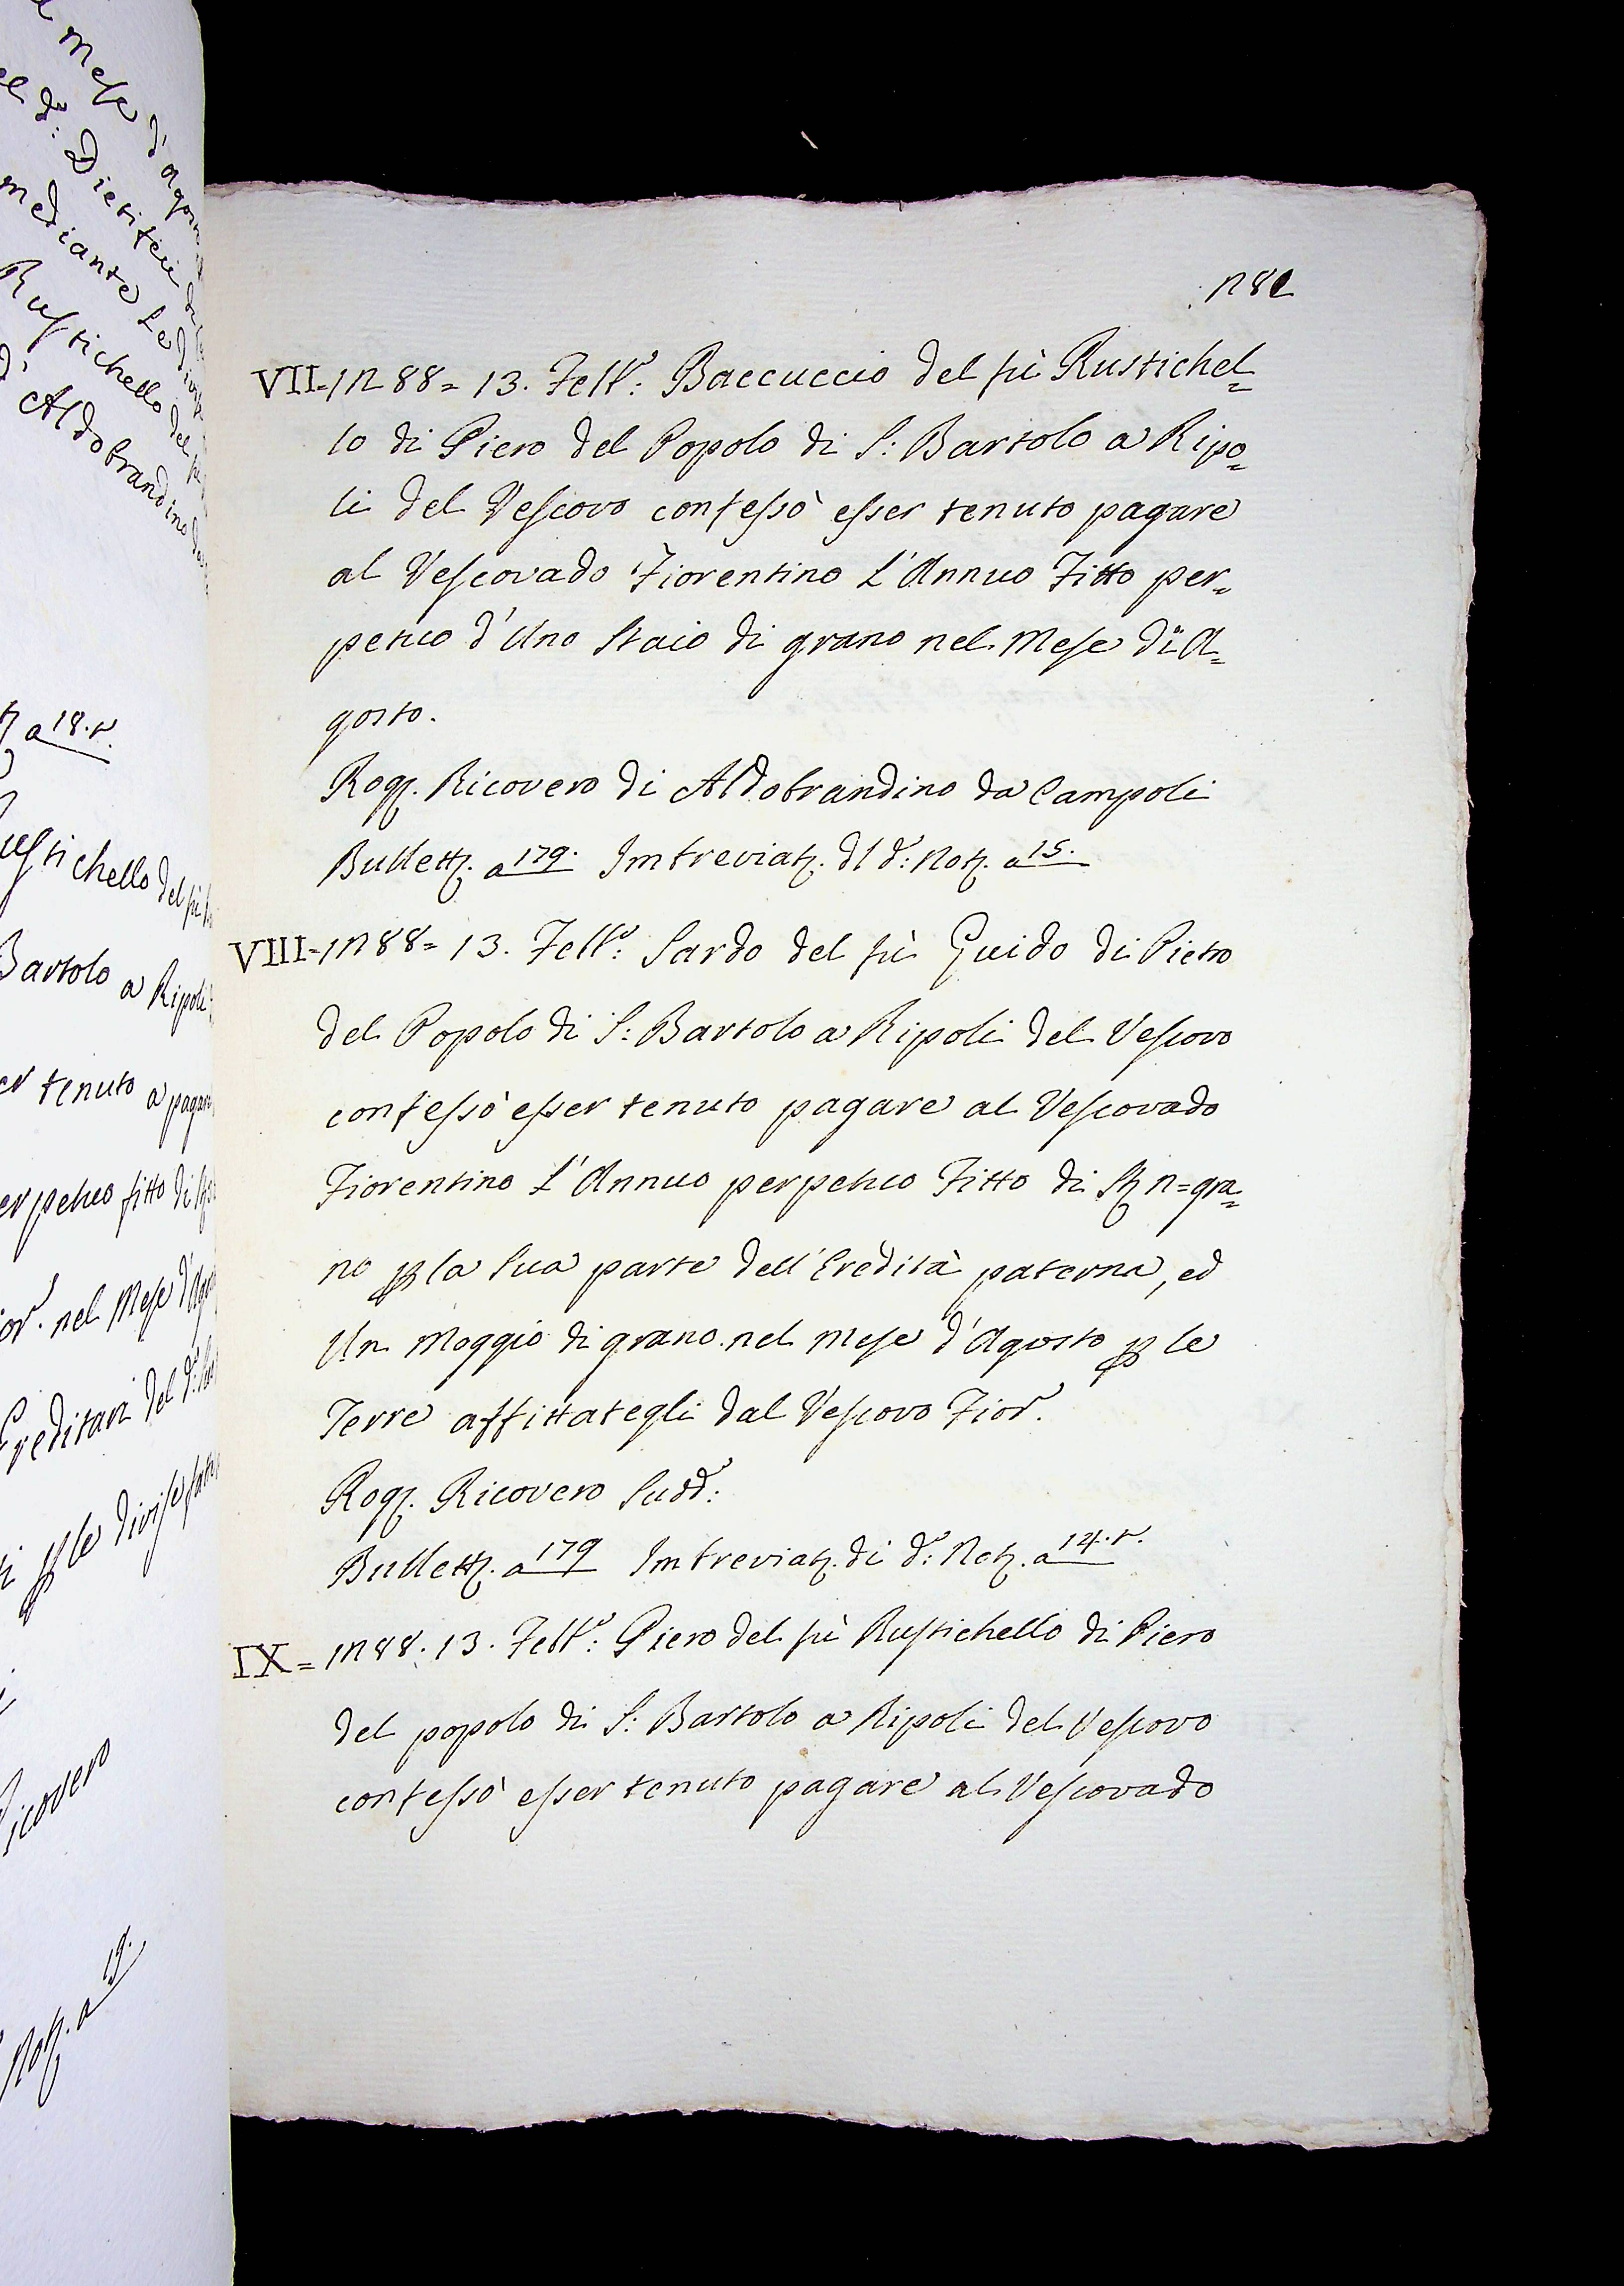 mese d'Agos
el d.o: Dieci feii di
mediante le divise
Rustichello del fù
d'Aldobrandino da
a 18. t.
Rustichello del fù
Bartolo a Ripoli
er tenuto a pagare
erpetuo fitto di
ior.o nel Mese d'Ago
Ereditari del d.o:
p le divise fatte
Ricovero
Notj. a 19.
1281
VII=1288= 13. Febb.o: Baccuccio del fù Rustichel=
lo di Piero del Popolo di S: Bartolo a Ripo=
li del Vescovo confessò esser tenuto pagare
al Vescovado Fiorentino l'Annuo Fitto per=
petuo d'Uno Staio di grano nel Mese di A=
gosto.
Rogj. Ricovero di Aldobrandino da Campoli
Bullettj. a 179. Imbreviatj. dl d.o: Notj. a 15.
VIII=1288= 13. Febb.o: Sardo del fù Guido di Pietro
del Popolo di S: Bartolo a Ripoli del Vescovo
confessò esser tenuto pagare al Vescovado
Fiorentino l'Annuo perpetuo Fitto di Stj 2=gra=
no p la Sua parte dell'Eredità paterna, ed
Un Moggio di grano nel mese d'Agosto p le
Terre affittategli dal Vescovo Fior.o
Rogj. Ricovero Sudd.o:
Bullettj. a 179 Imbreviatj. di d.o: Notj. a 14. t.
IX= 1288. 13. Febb.o: Piero del fù Rustichello di Piero
del popolo di S: Bartolo a Ripoli del Vescovo
confessò esser tenuto pagare al Vescovado